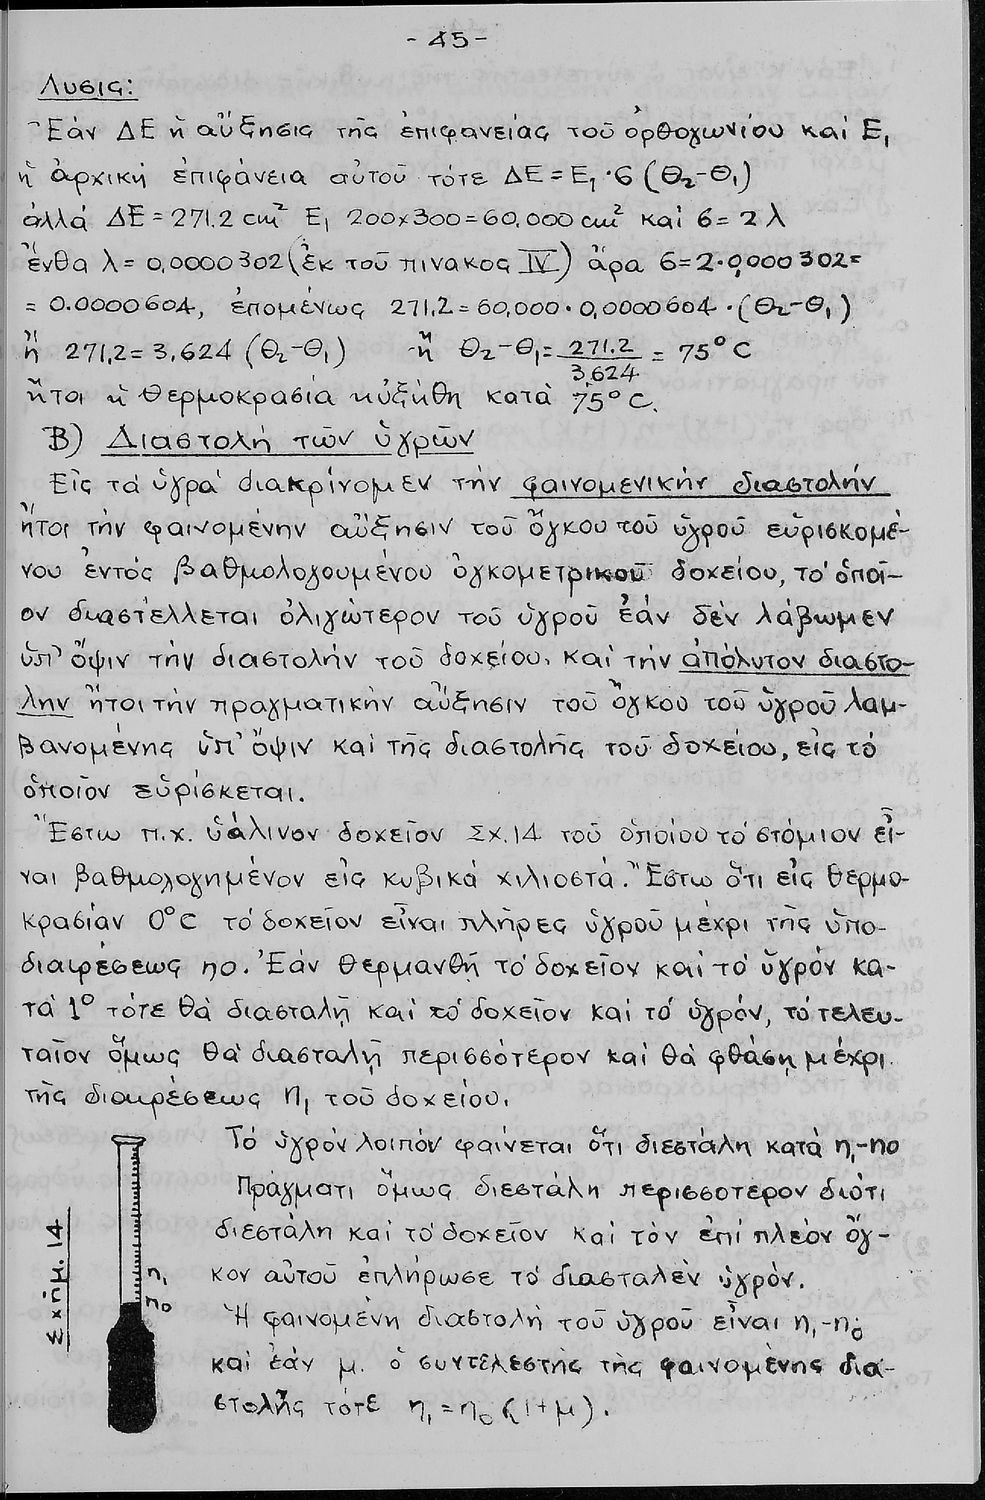 - 45 -
Λυσις:
Ἐάν ΔΕ ἡ αὔξησις τῆς ἐπιφανείας τοῦ ὀρθογωνίου καί Ε₁
ἡ ἀρχική ἐπιφάνεια αὐτοῦ τότε ΔΕ = Ε₁ · б (Θ₂-Θ₁)
ἀλλά ΔΕ = 271.2 cm² Ε₁ 200×300 = 60.000 cm² καί б = 2 λ
ἔνθα λ = 0,0000302 (ἐκ τοῦ πινακος IV) ἄρα б = 2·0,0000302 =
= 0.0000604, ἑπομένως 271,2 = 60,000 · 0,0000604 · (Θ₂-Θ₁)
ἤ 271,2 = 3,624 (Θ₂-Θ₁) ἤ Θ₂-Θ₁ = 271.2 / 3,624 = 75°C
ἤτοι ἡ θερμοκρασία ηὐξήθη κατά 75°C.
Β) Διαστολή τῶν ὑγρῶν
Εἰς τά ὑγρά διακρίνομεν τήν φαινομενικήν διαστολήν
ἤτοι τήν φαινομένην αὔξησιν τοῦ ὄγκου τοῦ ὑγροῦ εὑρισκομέ-
νου ἐντός βαθμολογουμένου ὀγκομετρικοῦ δοχείου, τό ὁποῖ-
ον διαστέλλεται ὀλιγώτερον τοῦ ὑγροῦ ἐάν δέν λάβωμεν
ὑπ' ὄψιν τήν διαστολήν τοῦ δοχείου. καί τήν ἀπόλυτον διαστο-
λην ἤτοι τήν πραγματικήν αὔξησιν τοῦ ὄγκου τοῦ ὑγροῦ λαμ-
βανομένης ὑπ' ὄψιν καί τῆς διαστολῆς τοῦ δοχείου, εἰς τό
ὁποῖον εὑρίσκεται.
Ἔστω π.χ. ὑάλινον δοχεῖον Σχ.14 τοῦ ὁποίου τό στόμιον εἶ-
ναι βαθμολογημένον εἰς κυβικά χιλιοστά. Ἔστω ὅτι εἰς θερμο-
κρασίαν 0°C τό δοχεῖον εἶναι πλῆρες ὑγροῦ μέχρι τῆς ὑπο-
διαιρέσεως ηο. Ἐάν θερμανθῇ τό δοχεῖον καί τό ὑγρόν κα-
τά 1° τότε θά διασταλῇ καί τό δοχεῖον καί τό ὑγρόν, τό τελευ-
ταῖον ὅμως θά διασταλῇ περισσότερον καί θά φθάσῃ μέχρι
τῆς διαιρέσεως η₁ τοῦ δοχείου.
Τό ὑγρόν λοιπόν φαίνεται ὅτι διεστάλη κατά η₁-ηο
Πράγματι ὅμως διεστάλη περισσοτερον διότι
διεστάλη καί τό δοχεῖον καί τόν ἐπί πλέον ὄγ-
κον αὐτοῦ ἐπλήρωσε τό διασταλέν ὑγρόν.
Ἡ φαινομένη διαστολή τοῦ ὑγροῦ εἶναι η₁-η₀
καί ἐάν μ. ὁ συντελεστής τῆς φαινομένης δια-
στολῆς τότε η₁ = η₀ (1+μ).
η₁
ηο
Σχῆμ. 14